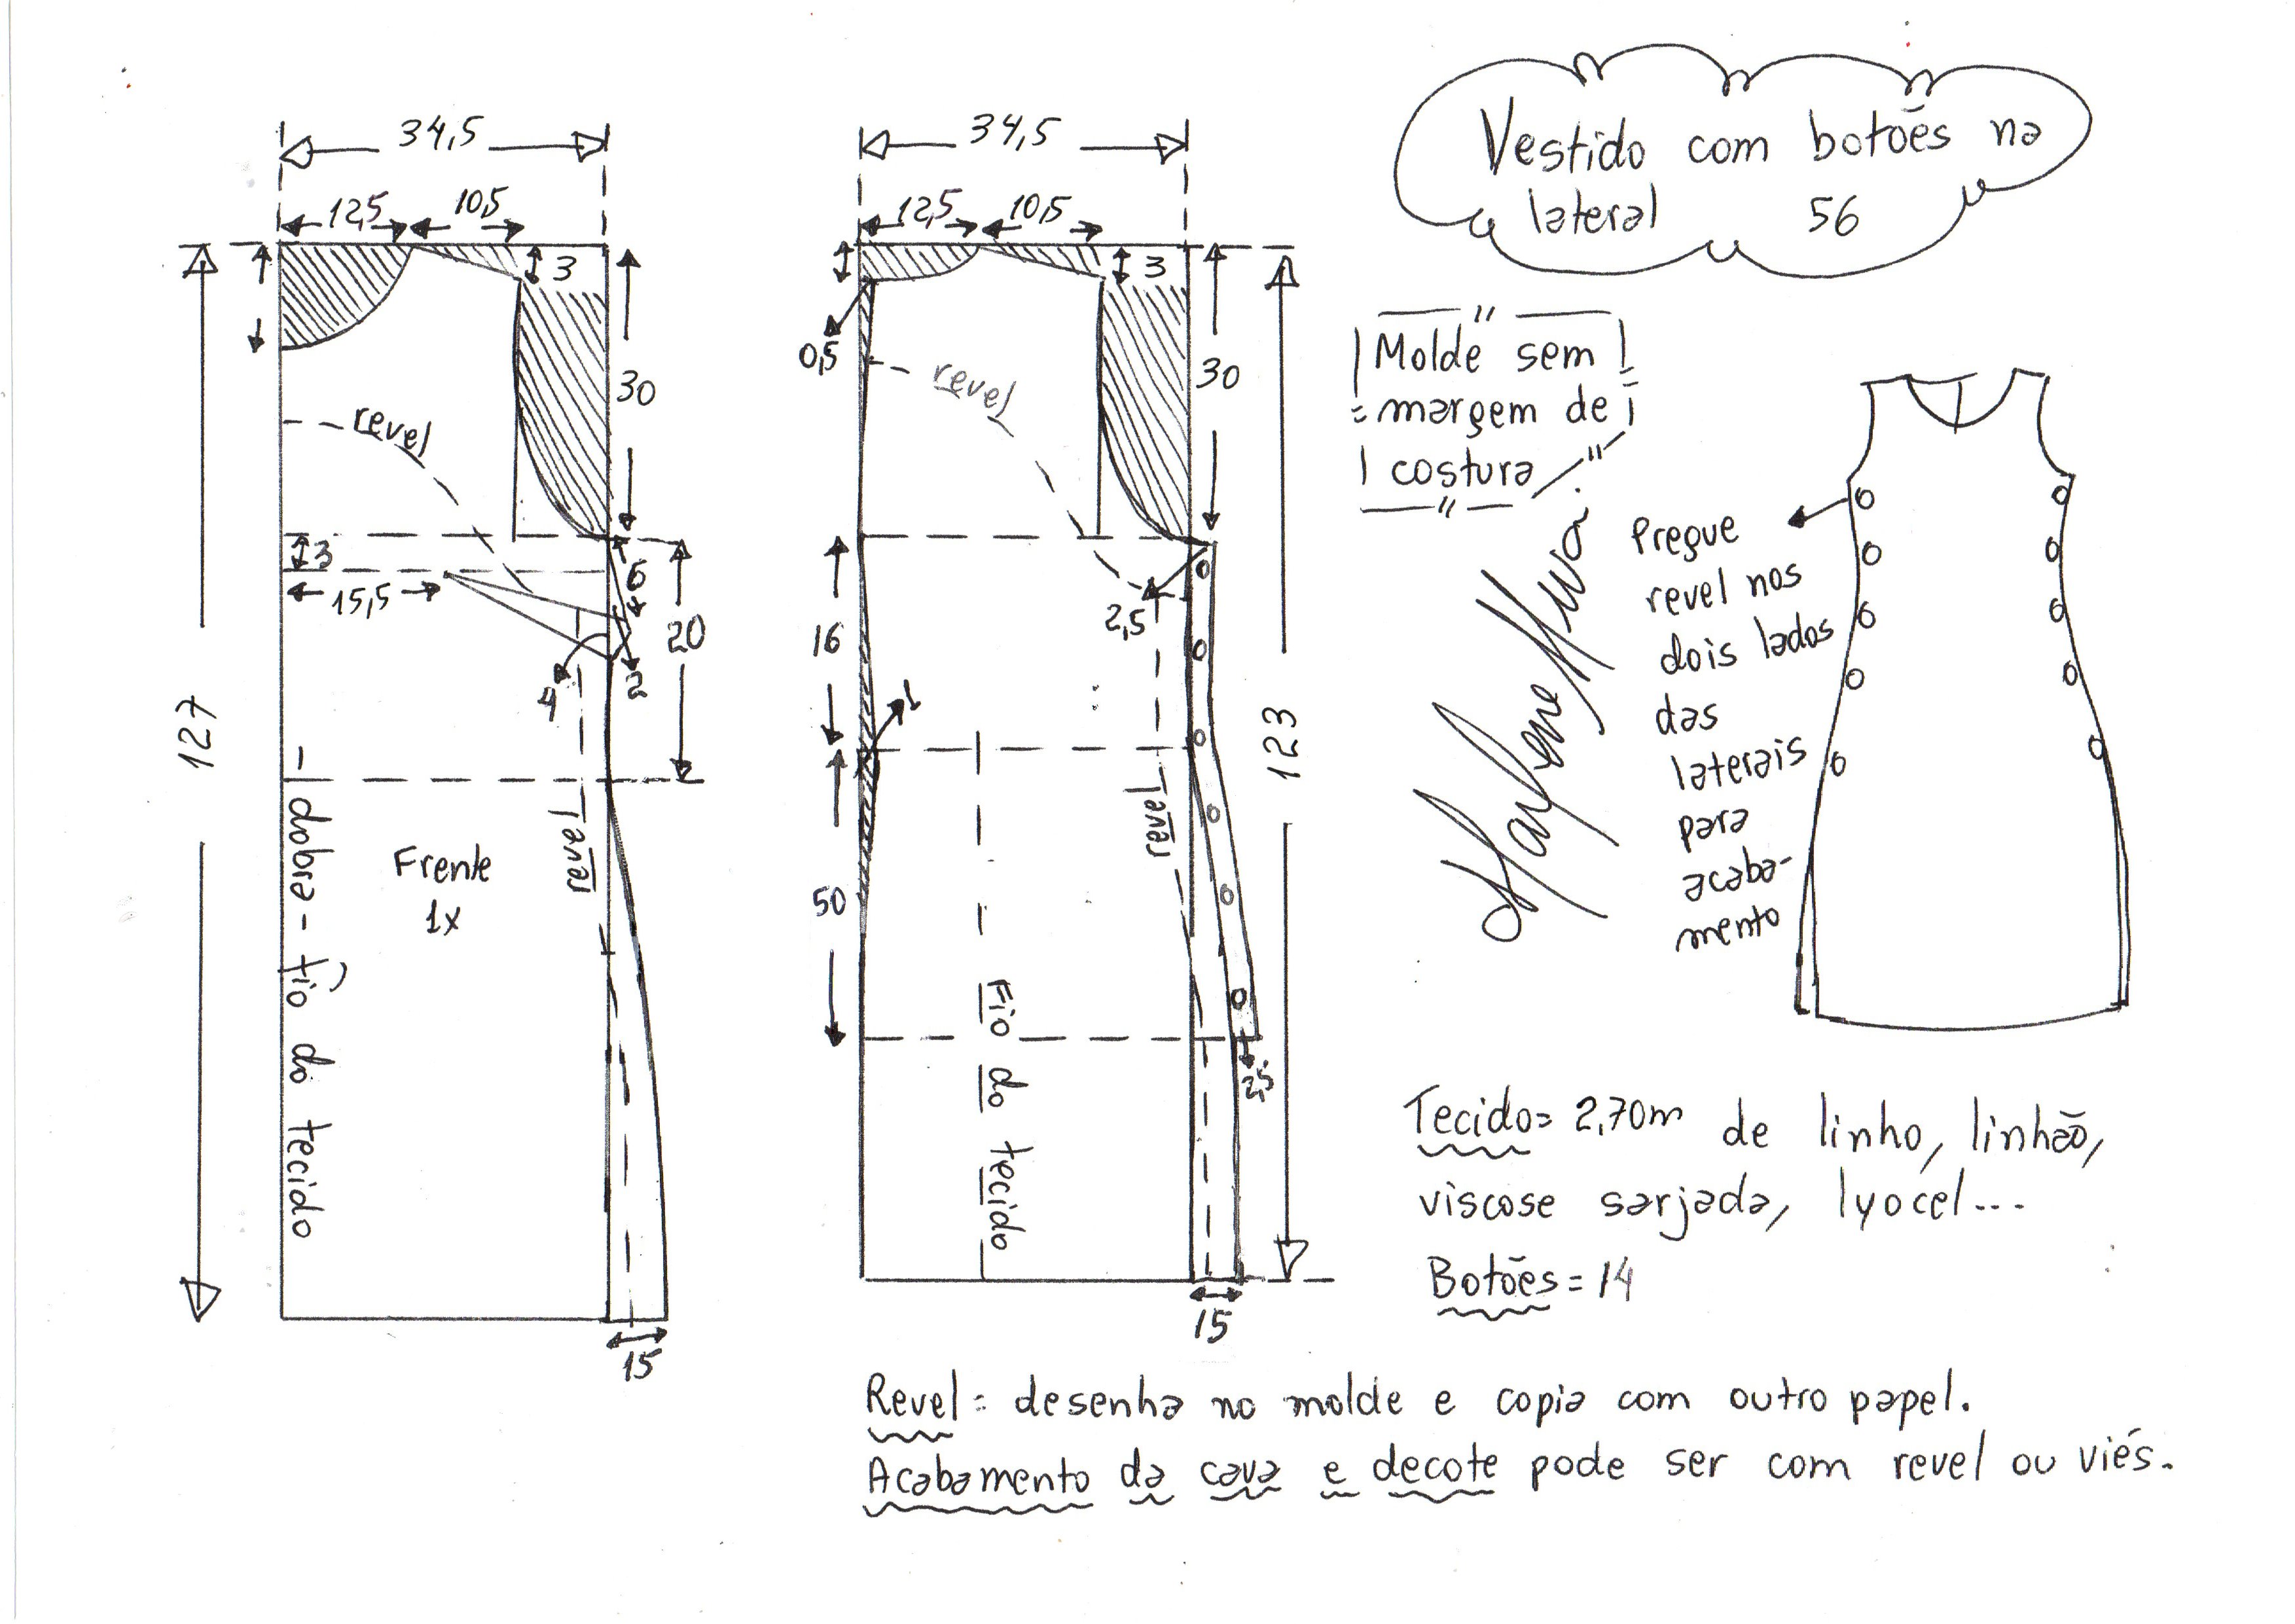 Vestido com botões na
lateral 56
Molde sem
margem de
costura
34,5
12,5 10,5
3
30
revel
3
15,5
6
20
4
2
127
dobra - fio do tecido
Frente
1x
revel
15
34,5
12,5 10,5
3
0,5
30
revel
2,5
16
1
123
revel
50
Fio do tecido
2,5
15
Pregue
revel nos
dois lados
das
laterais
para
acaba-
mento
Tecido= 2,70m de linho, linhão,
viscose sarjada, lyocel...
Botões = 14
Revel = desenha no molde e copia com outro papel.
Acabamento da cava e decote pode ser com revel ou viés.